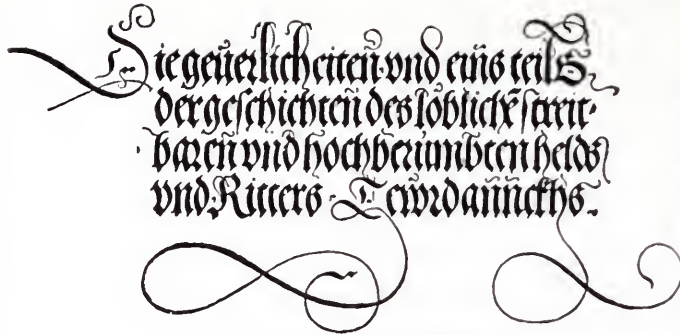 Die geuerlicheiteñ vnd eins teils
der geschichteñ des loblichẽ streit-
bareñ vnd hochberiumbten helds
vnd Ritters Tewrdannckhs.